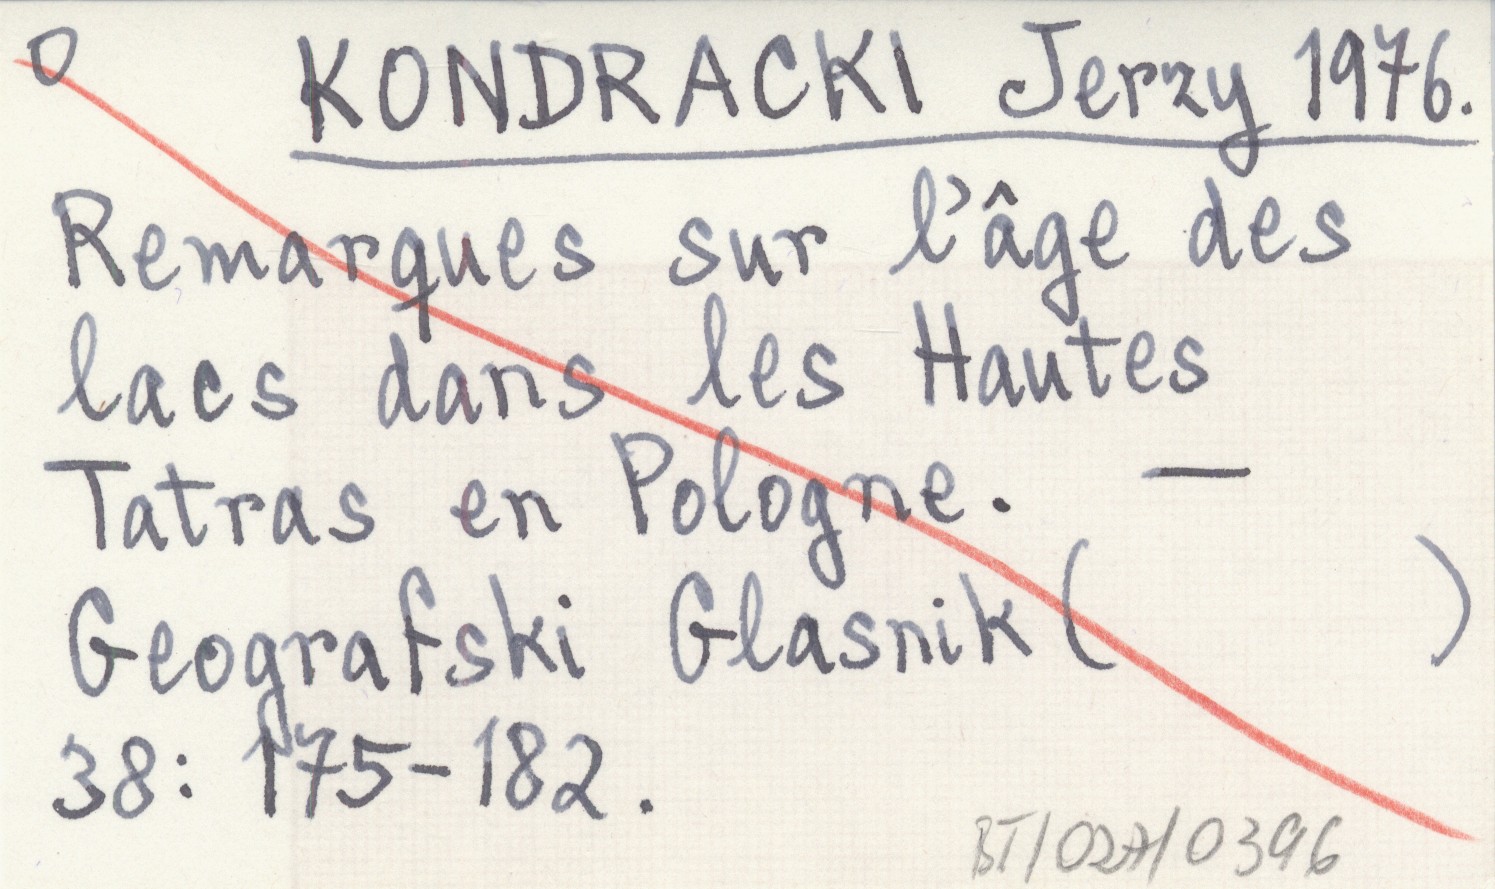 O KONDRACKI Jerzy 1976.
Remarques sur l'âge des
lacs dans les Hautes
Tatras en Pologne. —
Geografski Glasnik ( )
38: 175-182.
BT/027/0396